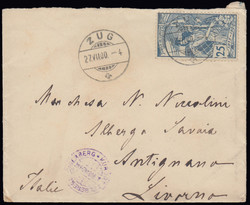 ZUG
27.VII.00.-4
25
Marchesa N. Niccolini
Albergo Savoia
Antignano
Italie Livorno